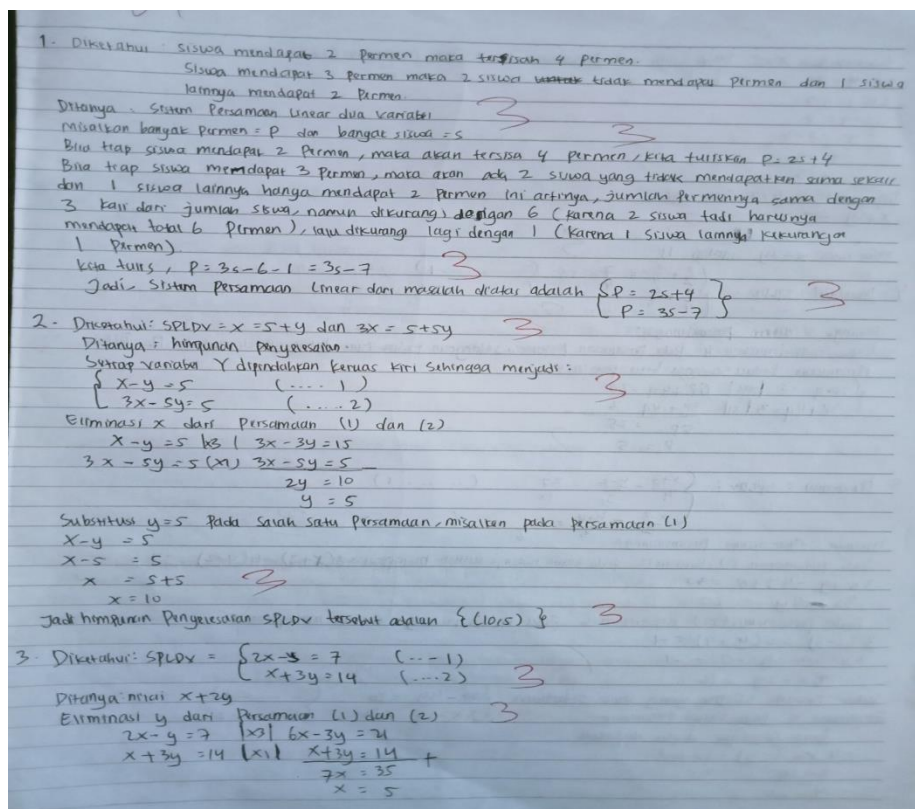 1. Diketahui : siswa mendapat 2 Permen maka tersisah 4 permen.
Siswa mendapat 3 permen maka 2 siswa tidak mendapat permen dan 1 siswa
lainnya mendapat 2 Permen.
Ditanya : Sistem Persamaan linear dua variabel
3
3
Misalkan banyak permen = P dan banyak siswa = s
Bila tiap siswa mendapat 2 Permen, maka akan tersisa 4 permen, kita tuliskan P = 2s + 4
Bila tiap siswa memdapat 3 Permen, maka akan ada 2 siswa yang tidak mendapatkan sama sekali
dan 1 siswa lainnya hanya mendapat 2 Permen ini artinya, jumlah Permennya sama dengan
3 kali dari jumlah siswa, namun dikurangi dengan 6 (karena 2 siswa tadi harusnya
mendapat total 6 Permen), lalu dikurangi lagi dengan 1 (karena 1 siswa lainnya kekurangan
1 Permen).
Kita tulis, P = 3s - 6 - 1 = 3s - 7 3
Jadi, Sistem Persamaan Linear dari masalah diatas adalah { P = 2s + 4 } 3
P = 3s - 7
2. Diketahui : SPLDV = x = 5 + y dan 3x = 5 + 5y 3
Ditanya : himpunan penyelesaian.
Setiap variabel Y dipindahkan keruas kiri sehingga menjadi :
{ x - y = 5 (.... 1) 3
3x - 5y = 5 (..... 2)
Eliminasi x dari Persamaan (1) dan (2)
x - y = 5 |x3| 3x - 3y = 15
3x - 5y = 5 (x1) 3x - 5y = 5 -
2y = 10
y = 5
Substitusi y = 5 Pada salah satu Persamaan, misalkan pada persamaan (1)
x - y = 5
x - 5 = 5
x = 5 + 5 3
x = 10
Jadi himpunan Penyelesaian SPLDV tersebut adalah { (10,5) } 3
3. Diketahui : SPLDV = { 2x - y = 7 (... 1)
x + 3y = 14 (....2) 3
Ditanya nilai x + 2y
Eliminasi y dari Persamaan (1) dan (2) 3
2x - y = 7 |x3| 6x - 3y = 21
x + 3y = 14 |x1| x + 3y = 14 +
7x = 35
x = 5